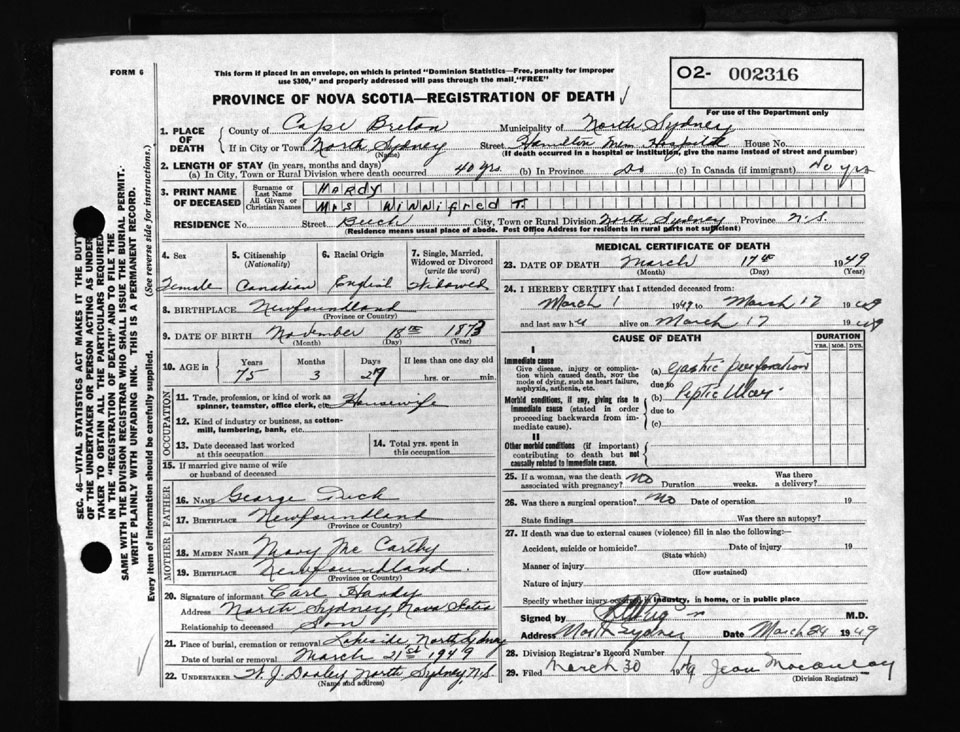 FORM 6
This form if placed in an envelope, on which is printed "Dominion Statistics—Free, penalty for improper
use $300," and properly addressed will pass through the mail "FREE"
02- 002316
For use of the Department only
PROVINCE OF NOVA SCOTIA—REGISTRATION OF DEATH
1. PLACE OF DEATH
County of Cape Breton Municipality of North Sydney
If in City or Town North Sydney Street Hamilton Mem Hospital House No.
(Name) (If death occurred in a hospital or institution, give the name instead of street and number)
2. LENGTH OF STAY (in years, months and days)
(a) In City, Town or Rural Division where death occurred 40 yrs. (b) In Province Do (c) In Canada (if immigrant) 40 yrs
3. PRINT NAME OF DECEASED
Surname or Last Name HARDY
All Given or Christian Names MRS WINNIFRED T.
RESIDENCE No. Street City, Town or Rural Division North Sydney Province N.S.
(Residence means usual place of abode. Post Office Address for residents in rural parts not sufficient)
4. Sex Female
5. Citizenship (Nationality) Canadian
6. Racial Origin English
7. Single, Married, Widowed or Divorced (write the word) Widowed
8. BIRTHPLACE Newfoundland
(Province or Country)
9. DATE OF BIRTH November 18th 1873
(Month) (Day) (Year)
10. AGE in Years Months Days If less than one day old
75 3 27 hrs. or min.
OCCUPATION
11. Trade, profession, or kind of work as
spinner, teamster, office clerk, etc. Housewife
12. Kind of industry or business, as cotton-
mill, lumbering, bank, etc.
13. Date deceased last worked
at this occupation
14. Total yrs. spent in
this occupation
15. If married give name of wife
or husband of deceased
FATHER
16. NAME George
17. BIRTHPLACE Newfoundland
(Province or Country)
MOTHER
18. MAIDEN NAME Mary McCarthy
19. BIRTHPLACE Newfoundland.
(Province or Country)
20. Signature of informant Carl Hardy
Address North Sydney, Nova Scotia
Relationship to deceased Son
21. Place of burial, cremation or removal Lakeside, North Sydney
Date of burial or removal March 21st 1949
22. UNDERTAKER W. J. Dooley North Sydney, N.S.
(Name and address)
MEDICAL CERTIFICATE OF DEATH
23. DATE OF DEATH March 17th 1949
(Month) (Day) (Year)
24. I HEREBY CERTIFY that I attended deceased from:
March 1 1949 to March 17 1949
and last saw her alive on March 17 1949
CAUSE OF DEATH
DURATION
YRS. MOS. DYS.
I
Immediate cause
Give disease, injury or complica-
tion which caused death, NOT the
mode of dying, such as heart failure,
asphyxia, asthenia, etc.
(a) Gastric perforation
due to
Morbid conditions, if any, giving rise to
immediate cause (stated in order
proceeding backwards from im-
mediate cause).
(b) Peptic Ulcer
due to
(c)
II
Other morbid conditions (if important)
contributing to death but not
causally related to immediate cause.
25. If a woman, was the death
associated with pregnancy? No Duration weeks. Was there
a delivery?
26. Was there a surgical operation? No Date of operation 19
State findings Was there an autopsy?
27. If death was due to external causes (violence) fill in also the following:—
Accident, suicide or homicide? Date of injury 19
(State which)
Manner of injury
(How sustained)
Nature of injury
Specify whether injury occurred in industry, in home, or in public place
Signed by M.D.
Address North Sydney Date March 24 1949
28. Division Registrar's Record Number
29. Filed March 30 1949 Jean Macaulay
(Division Registrar)
SEC. 46—VITAL STATISTICS ACT MAKES IT THE DUTY
OF THE UNDERTAKER OR PERSON ACTING AS UNDER-
TAKER TO OBTAIN ALL THE PARTICULARS REQUIRED
IN THE "REGISTRATION OF DEATH" AND TO FILE THE
SAME WITH THE DIVISION REGISTRAR WHO SHALL ISSUE THE BURIAL PERMIT.
WRITE PLAINLY WITH UNFADING INK. THIS IS A PERMANENT RECORD.
Every item of information should be carefully supplied. (See reverse side for instructions.)